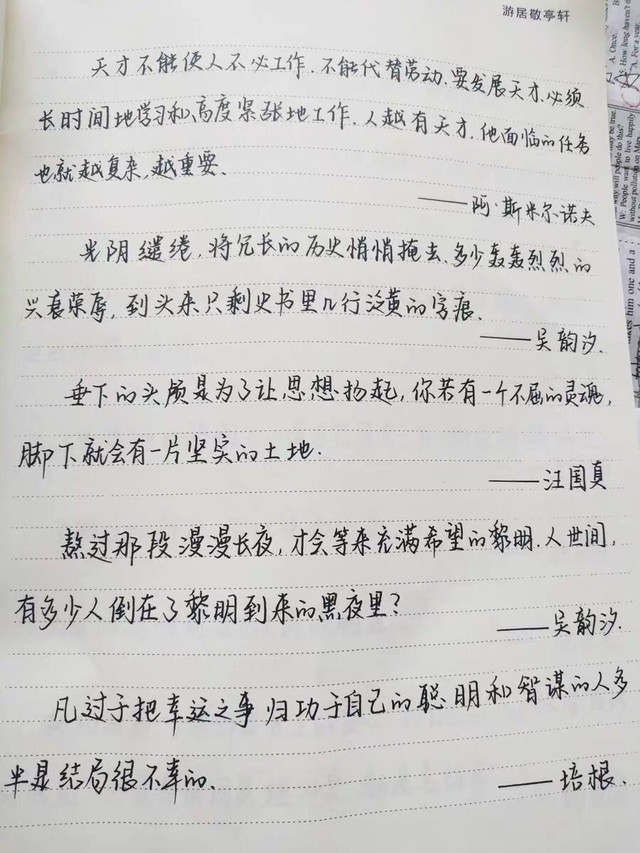 游居敬亭轩
天才不能使人不必工作.不能代替劳动.要发展天才.必须
长时间地学习和高度紧张地工作.人越有天才.他面临的任务
也就越复杂,越重要.
——阿·斯米尔诺夫
光阴缱绻,将冗长的历史悄悄掩去.多少轰轰烈烈的
兴衰荣辱,到头来只剩史书里几行泛黄的字痕.
——吴韵汐.
垂下的头颅是为了让思想扬起,你若有一个不屈的灵魂,
脚下就会有一片坚实的土地.
——汪国真
熬过那段漫漫长夜,才会等来充满希望的黎明.人世间,
有多少人倒在了黎明到来的黑夜里?
——吴韵汐.
凡过于把幸运之事归功于自己的聪明和智谋的人多
半是结局很不幸的.
——培根.
A. Once.
How long haven't
A. For a year.
W: People want to live happily
without pollution on
kes him one and a